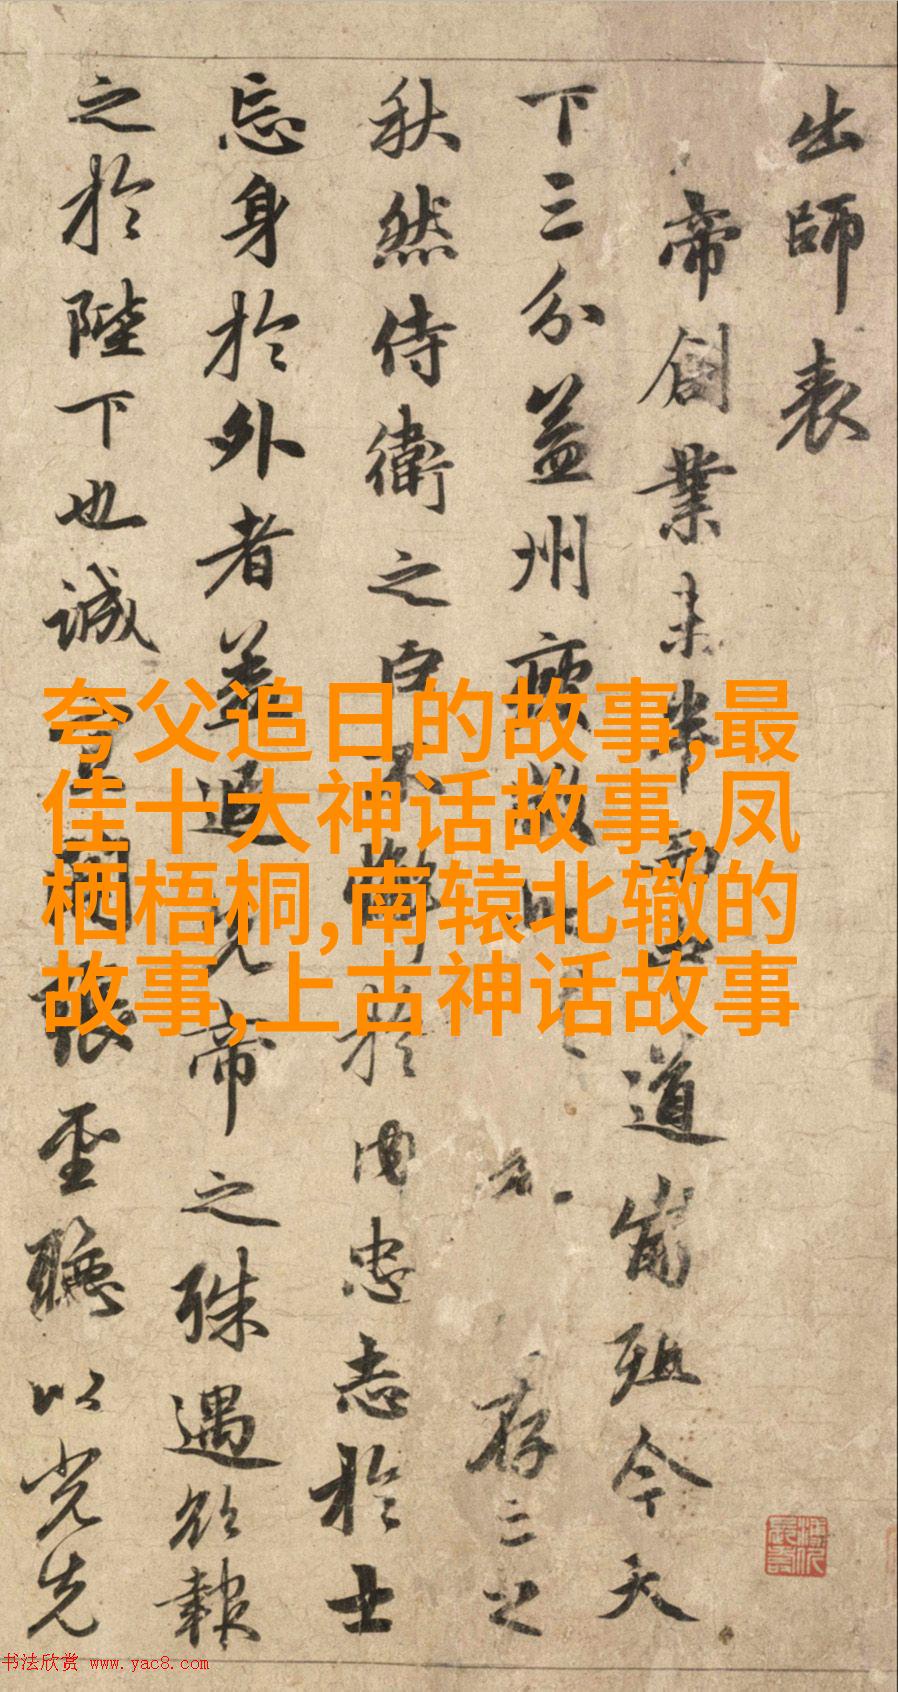 出師表
帝創業未半而中道崩殂今天
下三分益州疲敝此存亡之
秋然侍衛之臣不懈於内忠志於士
忘身於外者蓋追先帝之殊遇欲報
之於陛下也誠宜開張聖聽以光先
夸父追日的故事,最
佳十大神话故事,凤
栖梧桐,南辕北辙的
故事,上古神话故事
书法欣赏 www.yac8.com